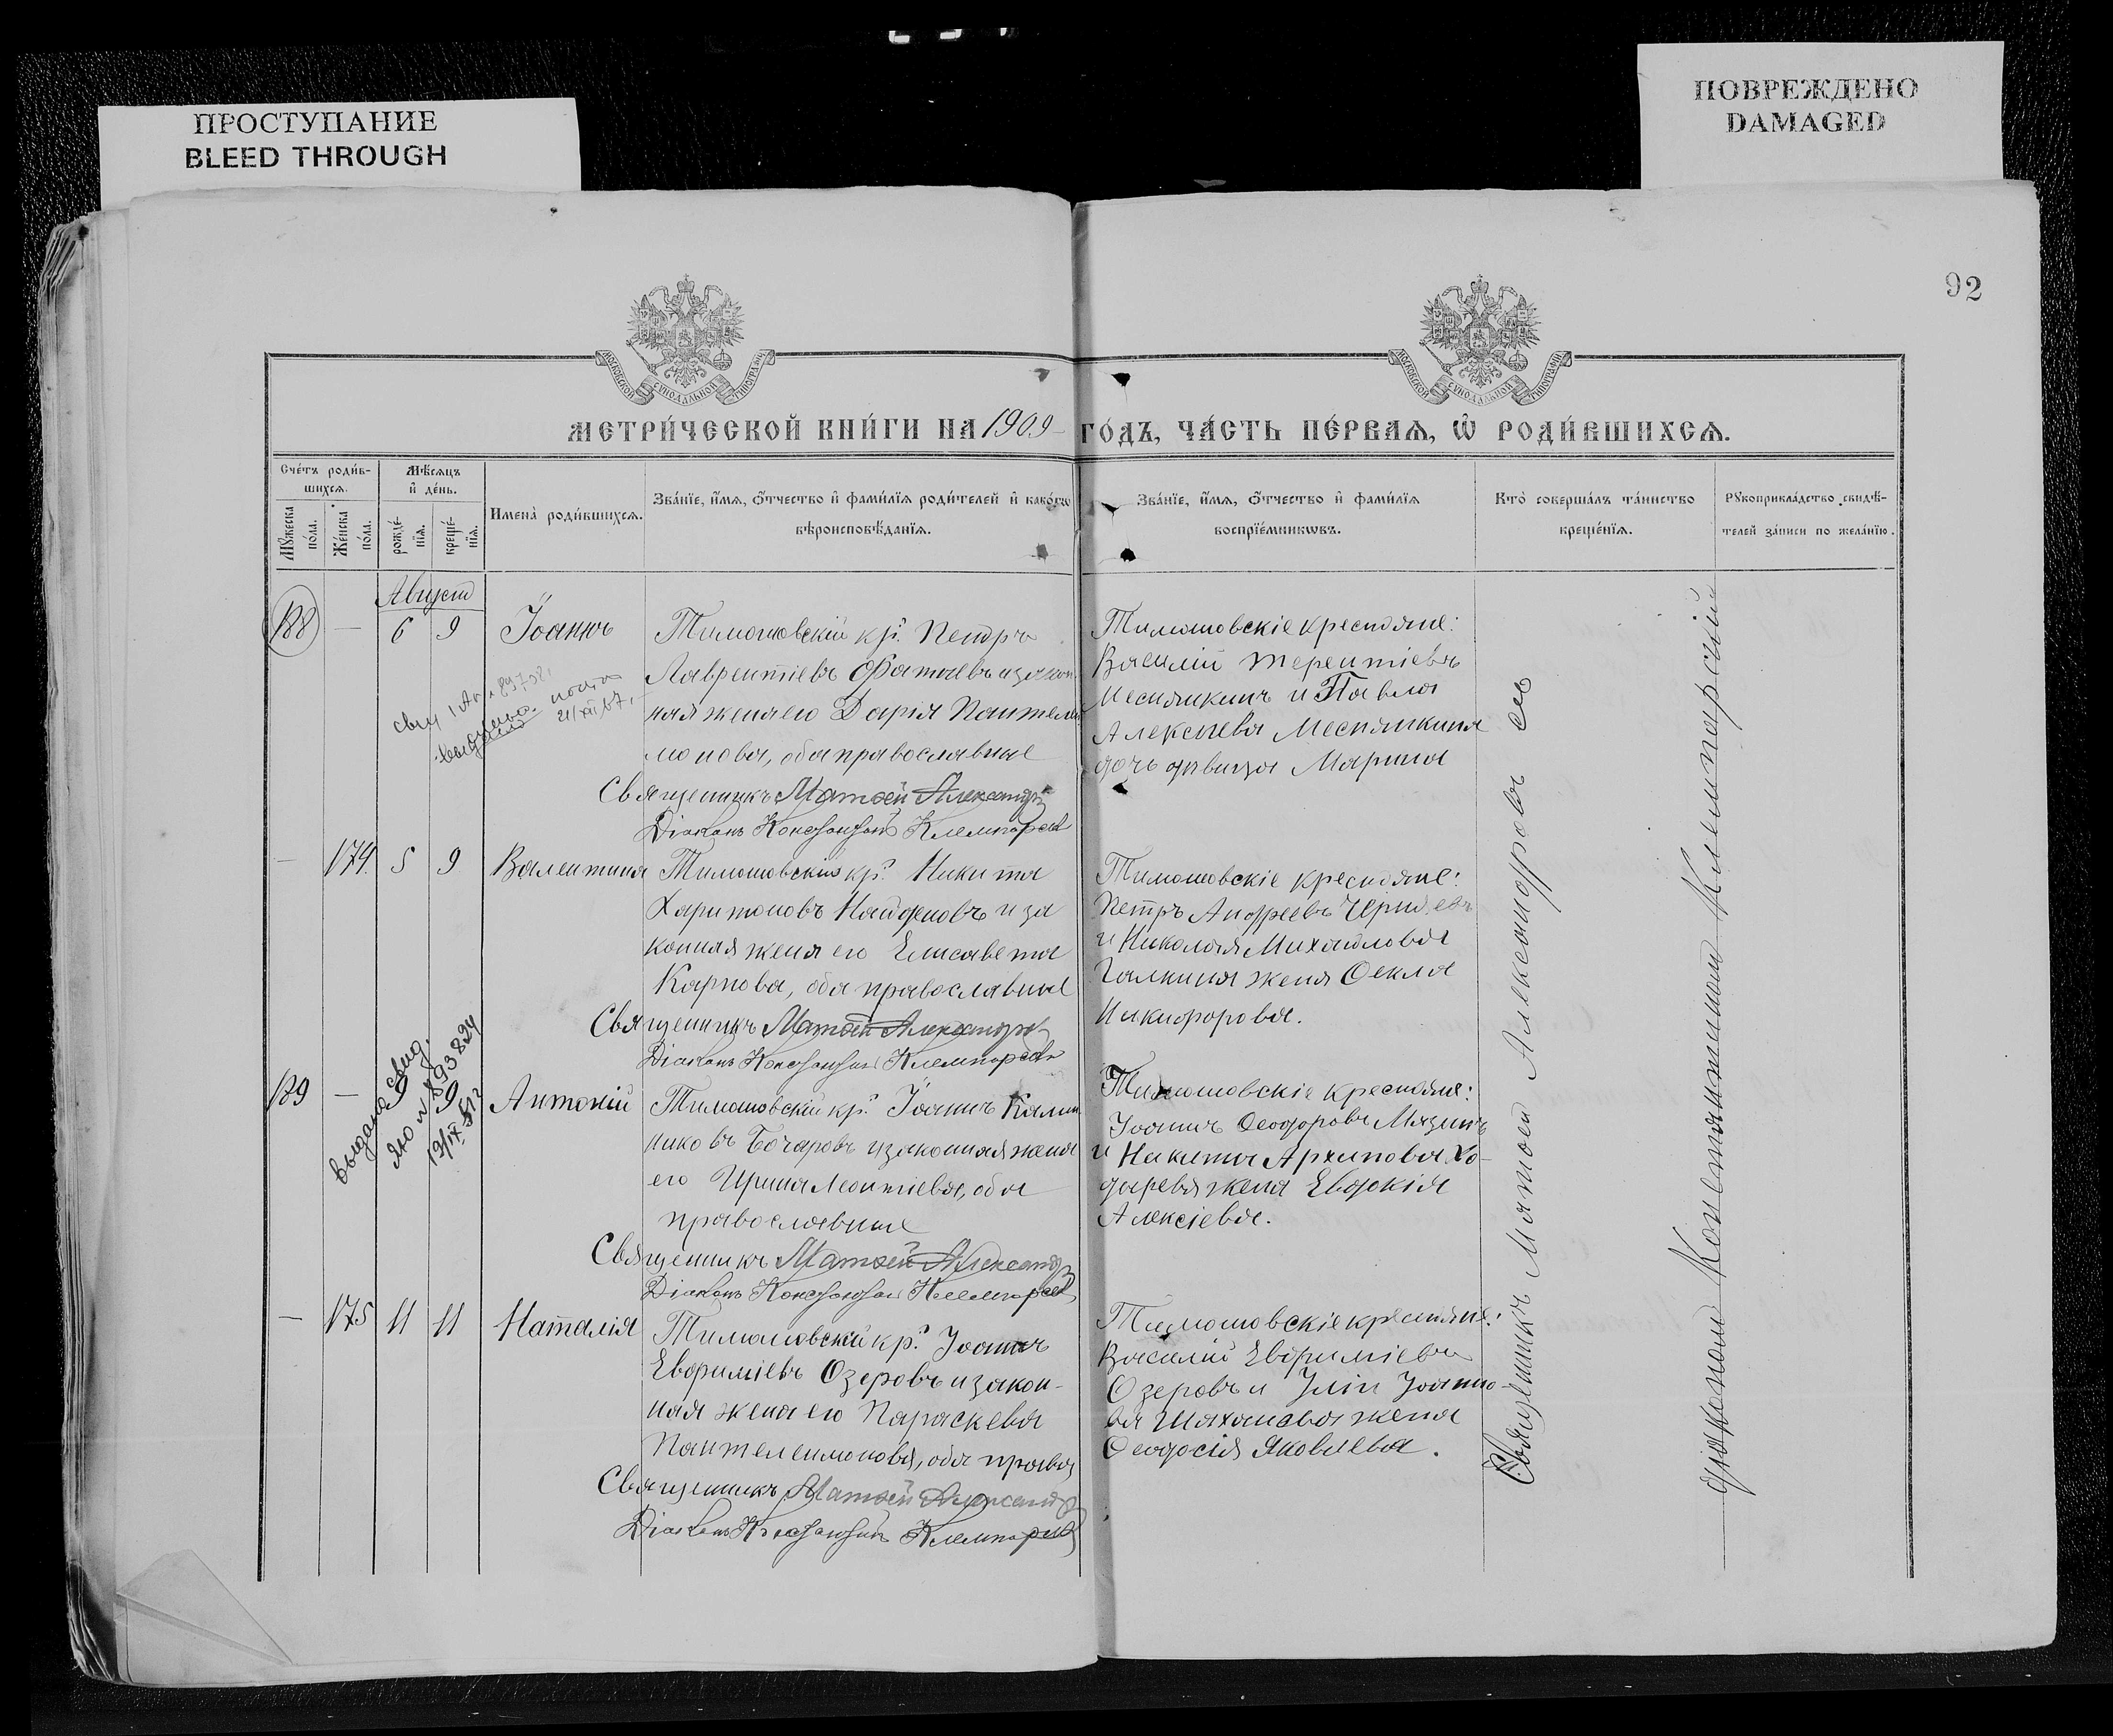 ПРОСТУПАНИЕ
BLEED THROUGH
ПОВРЕЖДЕНО
DAMAGED
92
МОСКОВСКОЙ СѴНОДАЛЬНОЙ ТИПОГРАФІИ
МОСКОВСКОЙ СѴНОДАЛЬНОЙ ТИПОГРАФІИ
МЕТРИ́ЧЕСКОЙ КНИ́ГИ НА 1909 ГО́ДЪ, ЧА́СТЬ ПЕ́РВАѦ, Ѡ҆ РОДИ́ВШИХСѦ.
Сче́тъ роди́в-
шихсѧ.
Мꙋ́жеска по́ла.
Же́нска по́ла.
Мѣ́сѧцъ
и҆ де́нь.
рожде́-
нїѧ.
креще́-
нїѧ.
Имена̀ роди́вшихсѧ.
Зва́нїе, и҆́мѧ, ѻ҆́тчество и҆ фами́лїѧ роди́телей и҆ како́гѡ
вѣроисповѣ́данїѧ.
Зва́нїе, и҆́мѧ, ѻ҆́тчество и҆ фами́лїѧ
воспрїе́мникѡвъ.
Кто̀ соверша́лъ та́инство
креще́нїѧ.
Рꙋкоприкла́дство свидѣ́-
телей за́писи по жела́нїю.
Август
188 — 6 9 Іоаннъ
Тимошовскій кр. Петръ
Лаврентіевъ Фатѣевъ и закон
ная жена его Дарія Пантелеи
монова, оба православные
Священникъ Матѳей Александров
Діаконъ Константинъ Клемпарскій
Тимошовскіе крестьяне:
Василій Терентіевъ
Меснянкинъ и Павла
Алексѣева Меснянкина
дочь дѣвица Марина
выдано
21/XII 67
— 174. 5 9 Валентина
Тимошовскій кр. Никита
Харитоновъ Найденовъ и за
конная жена его Елисавета
Карпова, оба православные
Священникъ Матѳей Александров
Діаконъ Константинъ Клемпарскій
Тимошовскіе крестьяне:
Петръ Андреевъ Черняевъ
и Николая Михайлова
Галкина жена Ѳекла
Никифорова.
189 — 9 9 Антоній
Тимошовскій кр. Іоаннъ Калин
никовъ Бочаровъ и законная жена
его Ирина Леонтіева, оба
православные
Священникъ Матѳей Александров
Діаконъ Константинъ Клемпарскій
Тимошовскіе крестьяне:
Іоаннъ Ѳеодоровъ Мязинъ
и Никиты Архипова Хо-
дарева жена Евдокія
Алексіева.
выдано свид.
ЯЮ № 893824
19/IX
— 175 11 11 Наталія
Тимошовскій кр. Іоаннъ
Евфиміевъ Озеровъ и закон-
ная жена его Параскева
Пантелеимонова, оба правосл
Священникъ Матѳей Александров
Діаконъ Константинъ Клемпарскій
Тимошовскіе крестьяне:
Василій Евфиміевъ
Озеровъ и Іліи Іоанно-
ва Шаханова жена
Ѳеодосія Яковлева.
Священникъ Матѳей Александровъ съ
діакономъ Константиномъ Клемпарскимъ